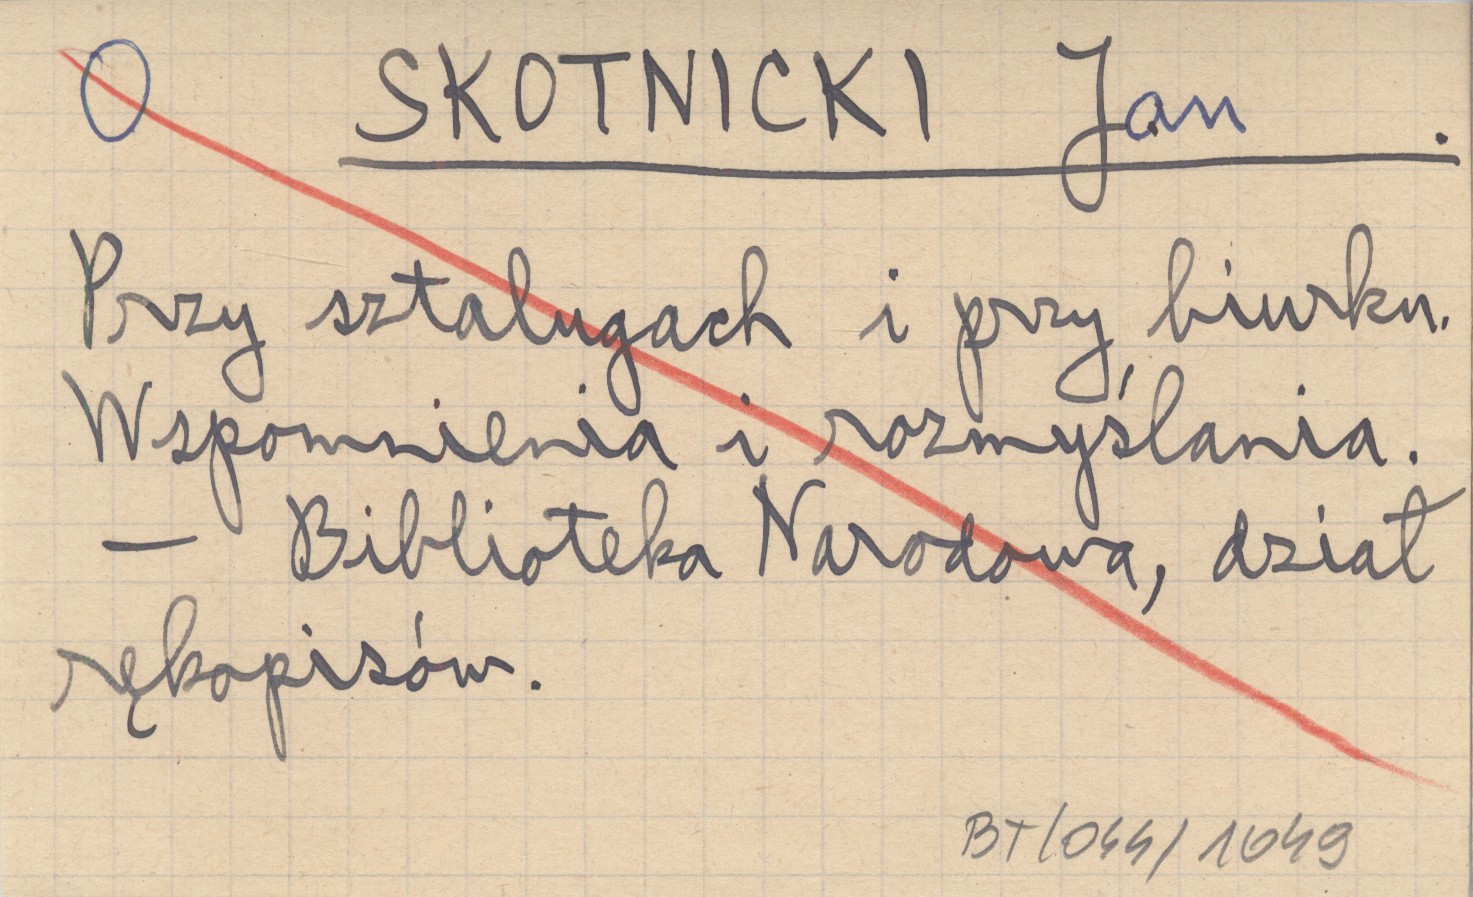 O SKOTNICKI Jan .
Przy sztalugach i przy biurku.
Wspomnienia i rozmyślania.
— Biblioteka Narodowa, dział
rękopisów.
BT/044/1049